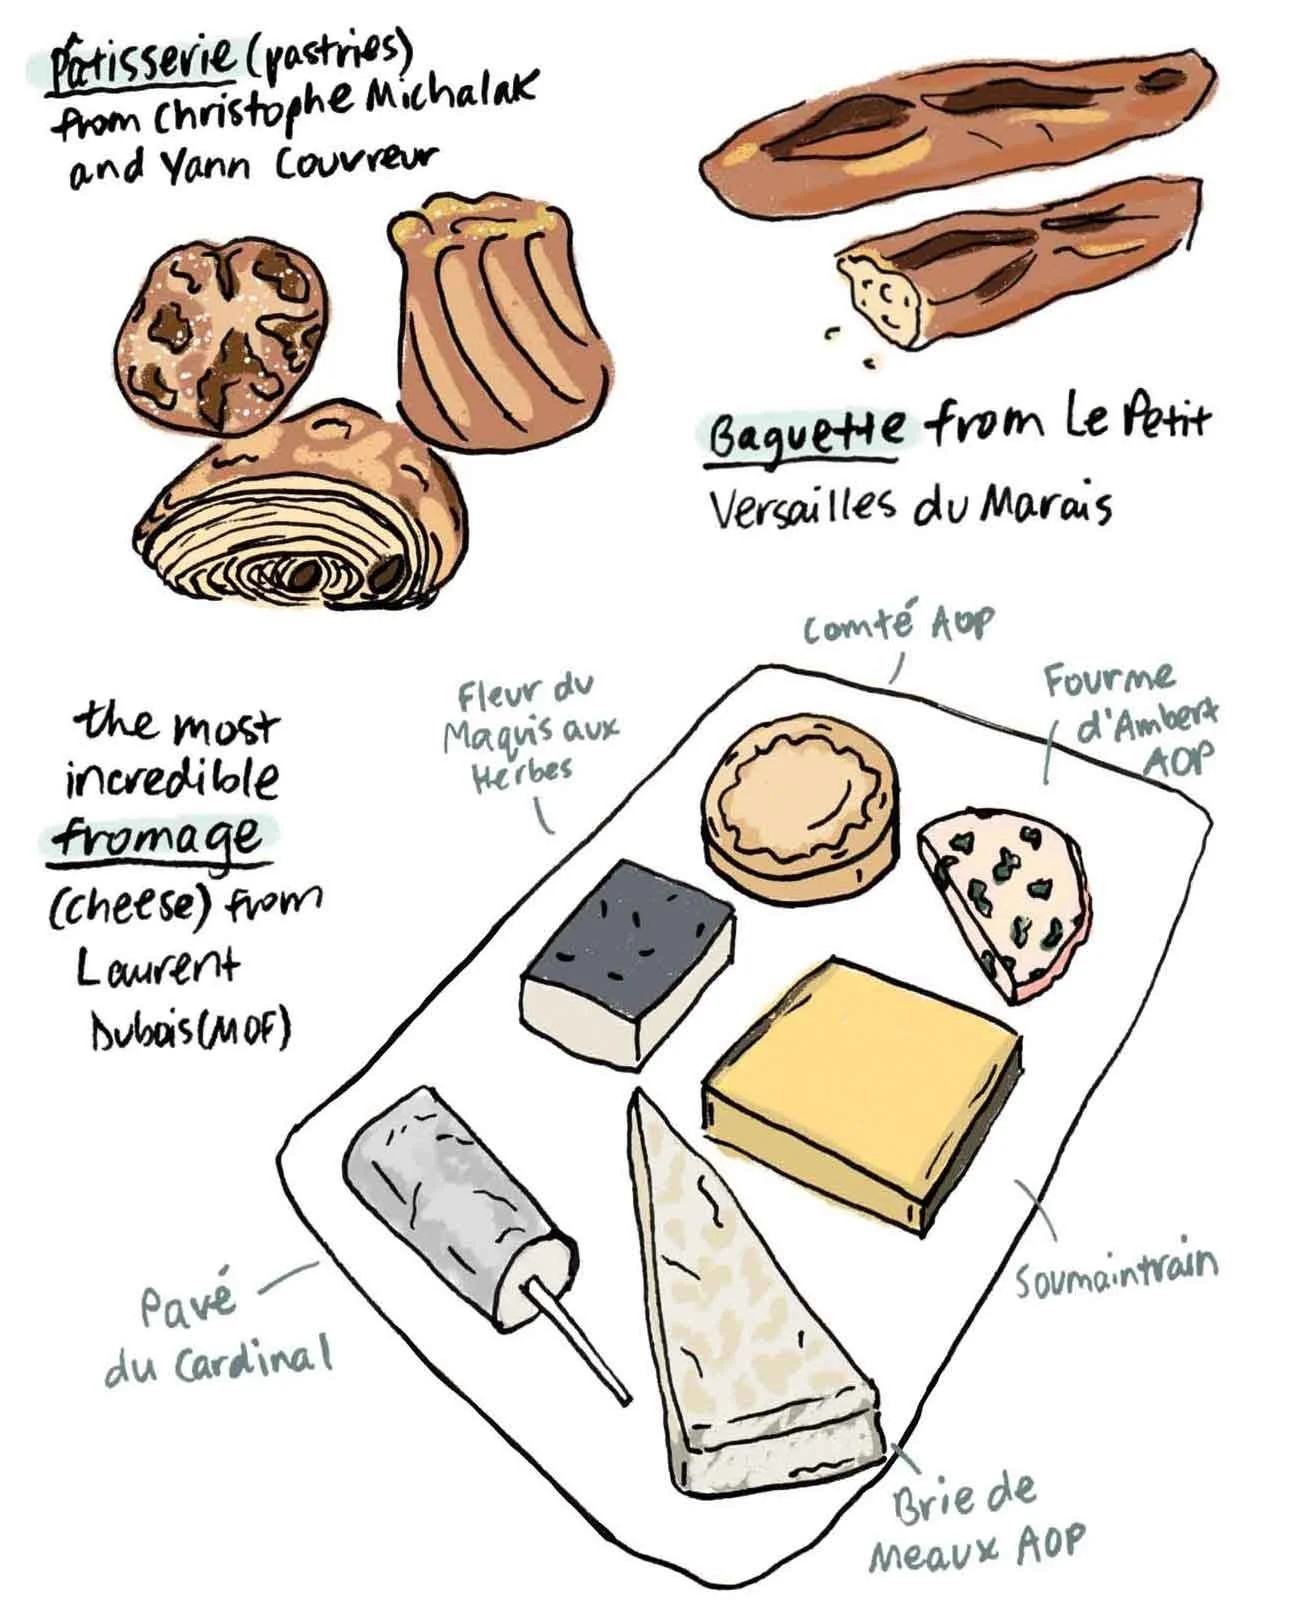 Pâtisserie (pastries)
from Christophe Michalak
and Yann Couvreur
Baguette from Le Petit
Versailles du Marais
the most
incredible
fromage
(cheese) from
Laurent
Dubois (MOF)
Comté AOP
Fourme
d'Ambert
AOP
Fleur du
Maquis aux
Herbes
Pavé
du Cardinal
Soumaintrain
Brie de
Meaux AOP